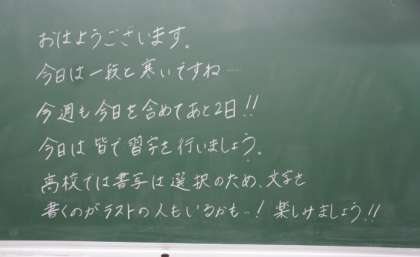 おはようございます。
今日は一段と寒いですね…
今週も今日を含めてあと2日!!
今日は皆で習字を行いましょう。
高校では書写は選択のため、文字を
書くのがラストの人もいるかも…! 楽しみましょう!!